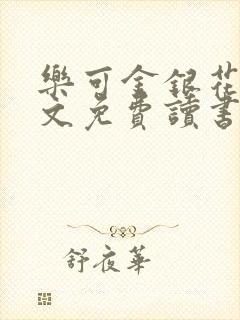 樂可金銀花
文免費讀書
舒夜華